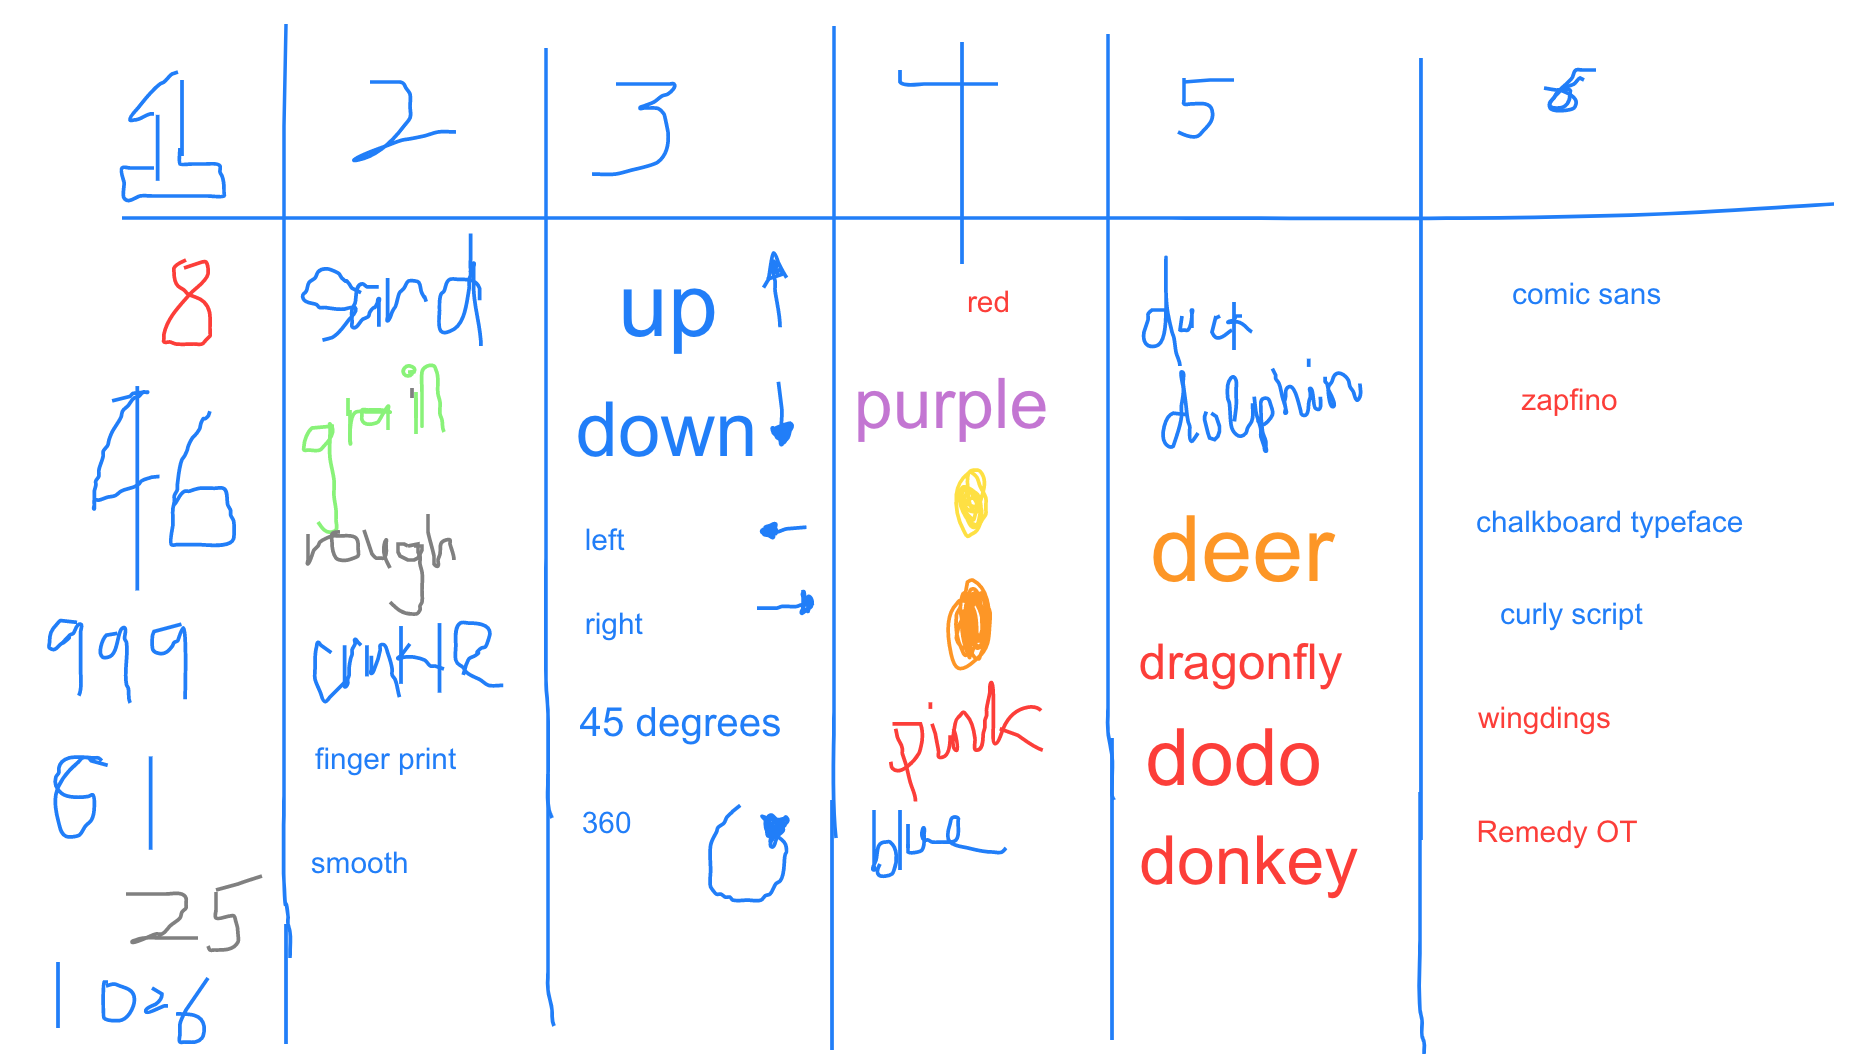 1 2 3 4 5 6
8 sand up red duck comic sans
46 grain down purple dolphin zapfino
rough left deer chalkboard typeface
999 crinkle right dragonfly curly script
61 finger print 45 degrees pink dodo wingdings
25 smooth 360 blue donkey Remedy OT
1026